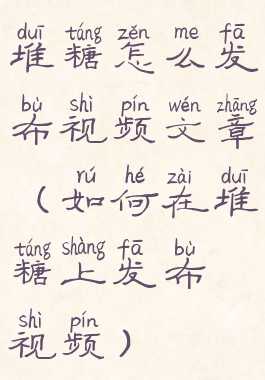 duī táng zěn me fā
堆糖怎么发
bù shì pín wén zhāng
布视频文章
rú hé zài duī
（如何在堆
táng shàng fā bù
糖上发布
shì pín
视频）